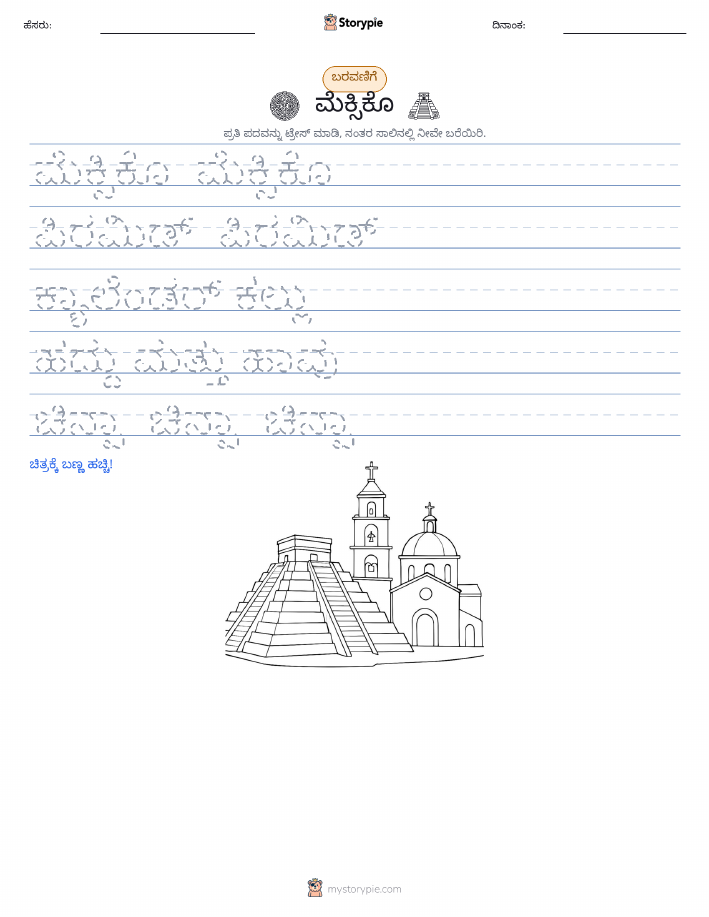 ಹೆಸರು:
Storypie
ದಿನಾಂಕ:
ಬರವಣಿಗೆ
ಮೆಕ್ಸಿಕೊ
ಪ್ರತಿ ಪದವನ್ನು ಟ್ರೇಸ್ ಮಾಡಿ, ನಂತರ ಸಾಲಿನಲ್ಲಿ ನೀವೇ ಬರೆಯಿರಿ.
ಮೆಕ್ಸಿಕೊ ಮೆಕ್ಸಿಕೊ
ಪಿರಮಿಡ್ ಪಿರಮಿಡ್
ಕ್ಯಾಲೆಂಡರ್ ಕಲ್ಲು
ಹದ್ದು ಮತ್ತು ಹಾವು
ಚಿನ್ನಾ ಚಿನ್ನಾ ಚಿನ್ನಾ
ಚಿತ್ರಕ್ಕೆ ಬಣ್ಣ ಹಚ್ಚಿ!
mystorypie.com